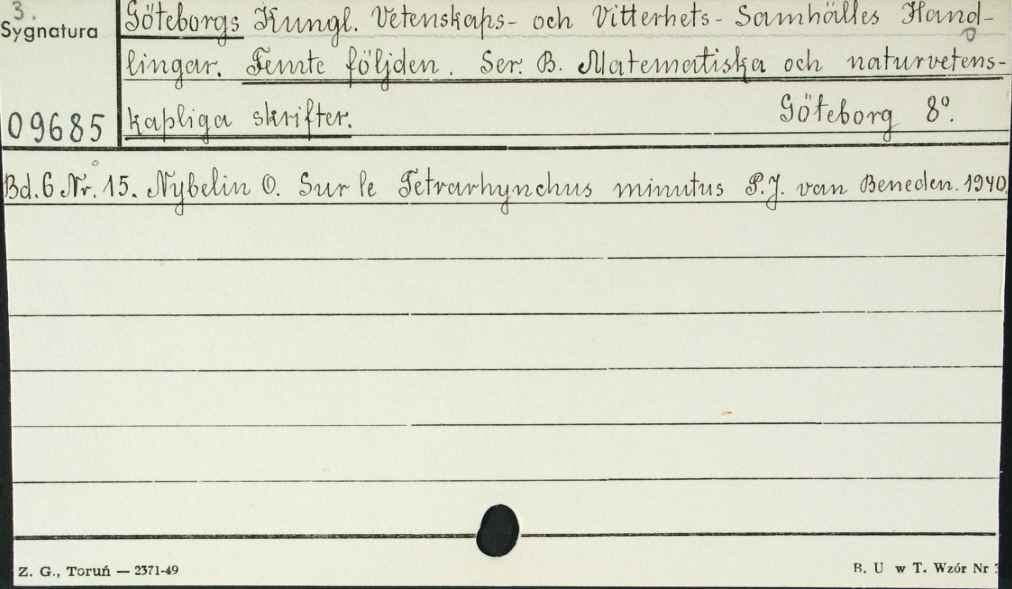 3.
Sygnatura
09685
Göteborgs Kungl. Vetenskaps- och Vitterhets- Samhälles Hand-
lingar. Femte följden. Ser. B. Matematiska och naturvetens-
kapliga skrifter. Göteborg 8°.
Bd. 6 Nr. 15. Nybelin O. Sur le Tetrarhynchus minutus P.J. van Beneden. 1940.
Z. G., Toruń — 2371-49
B. U w T. Wzór Nr